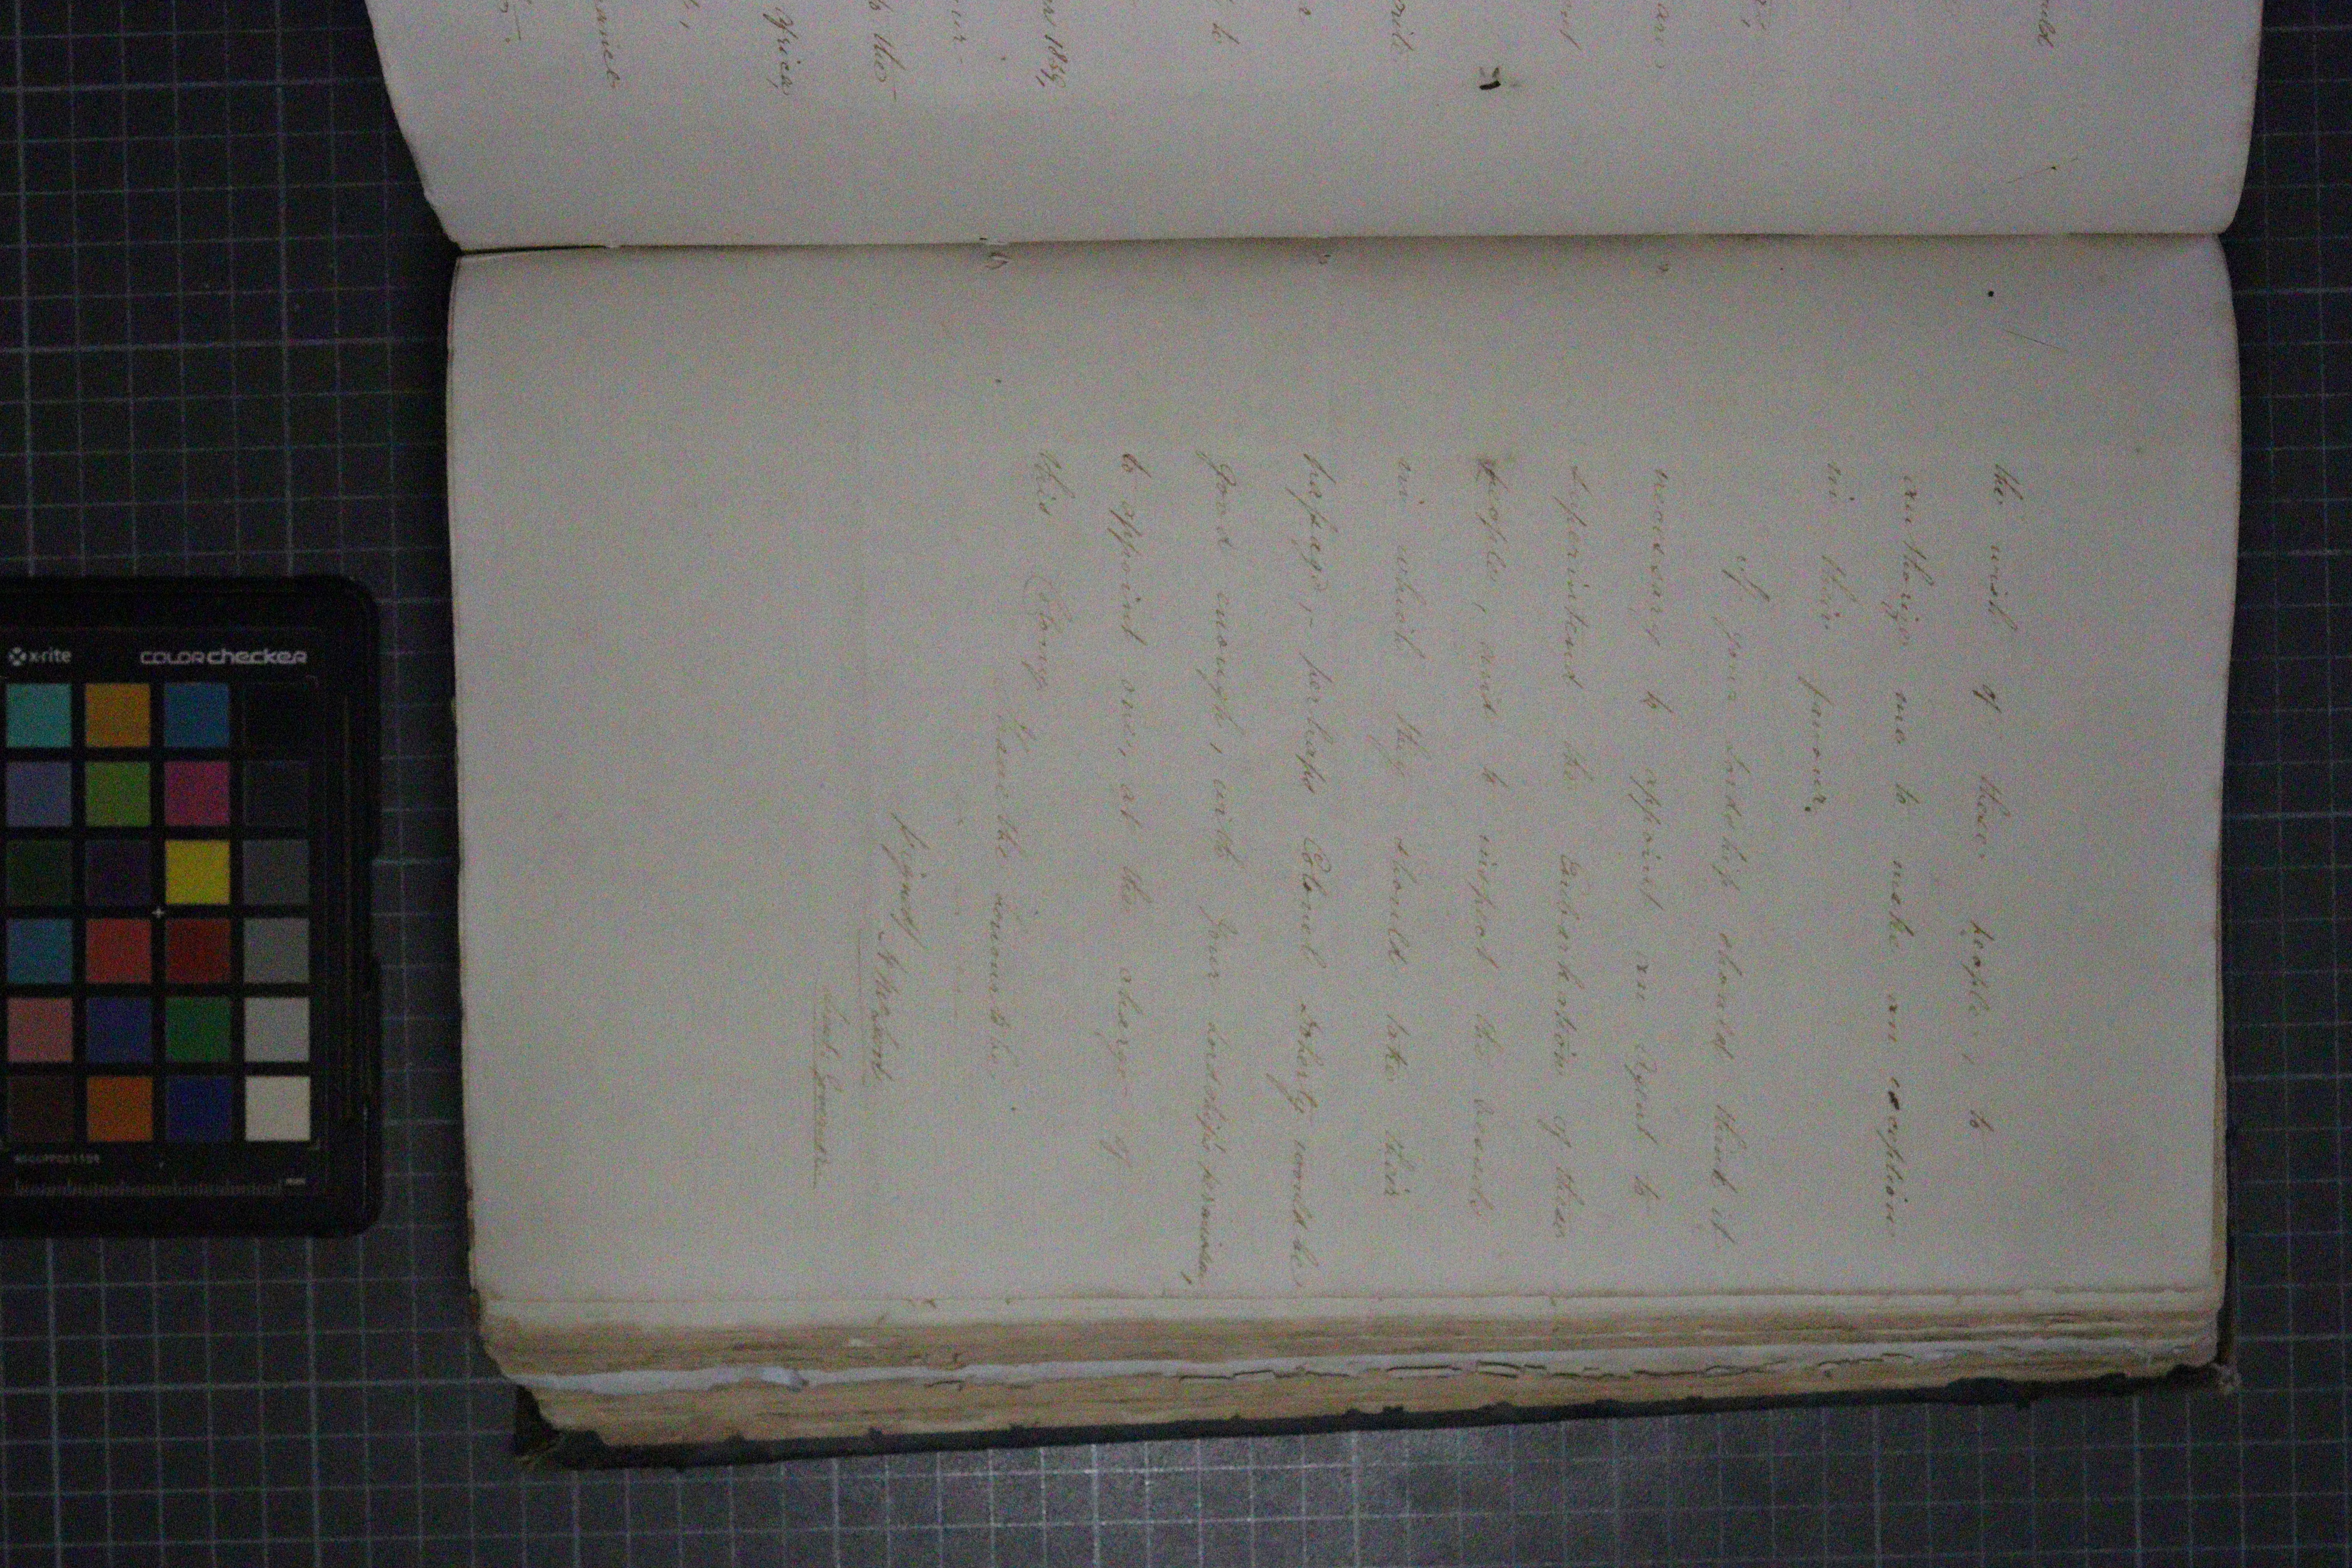 the wish of these people, to
authorize me to make an exception
in their favour.
If your Lordship should think it
necessary to appoint an Agent to
superintend the Embarkation of these
people, and to inspect the vessels
in which they should take their
passage, - perhaps Colonel Doherty would be
good enough, with your Lordship's permission,
to appoint one, at the charge of
this Colony.
I have the honour to be
(signed)
Lieut. Governor
x-rite
colorchecker